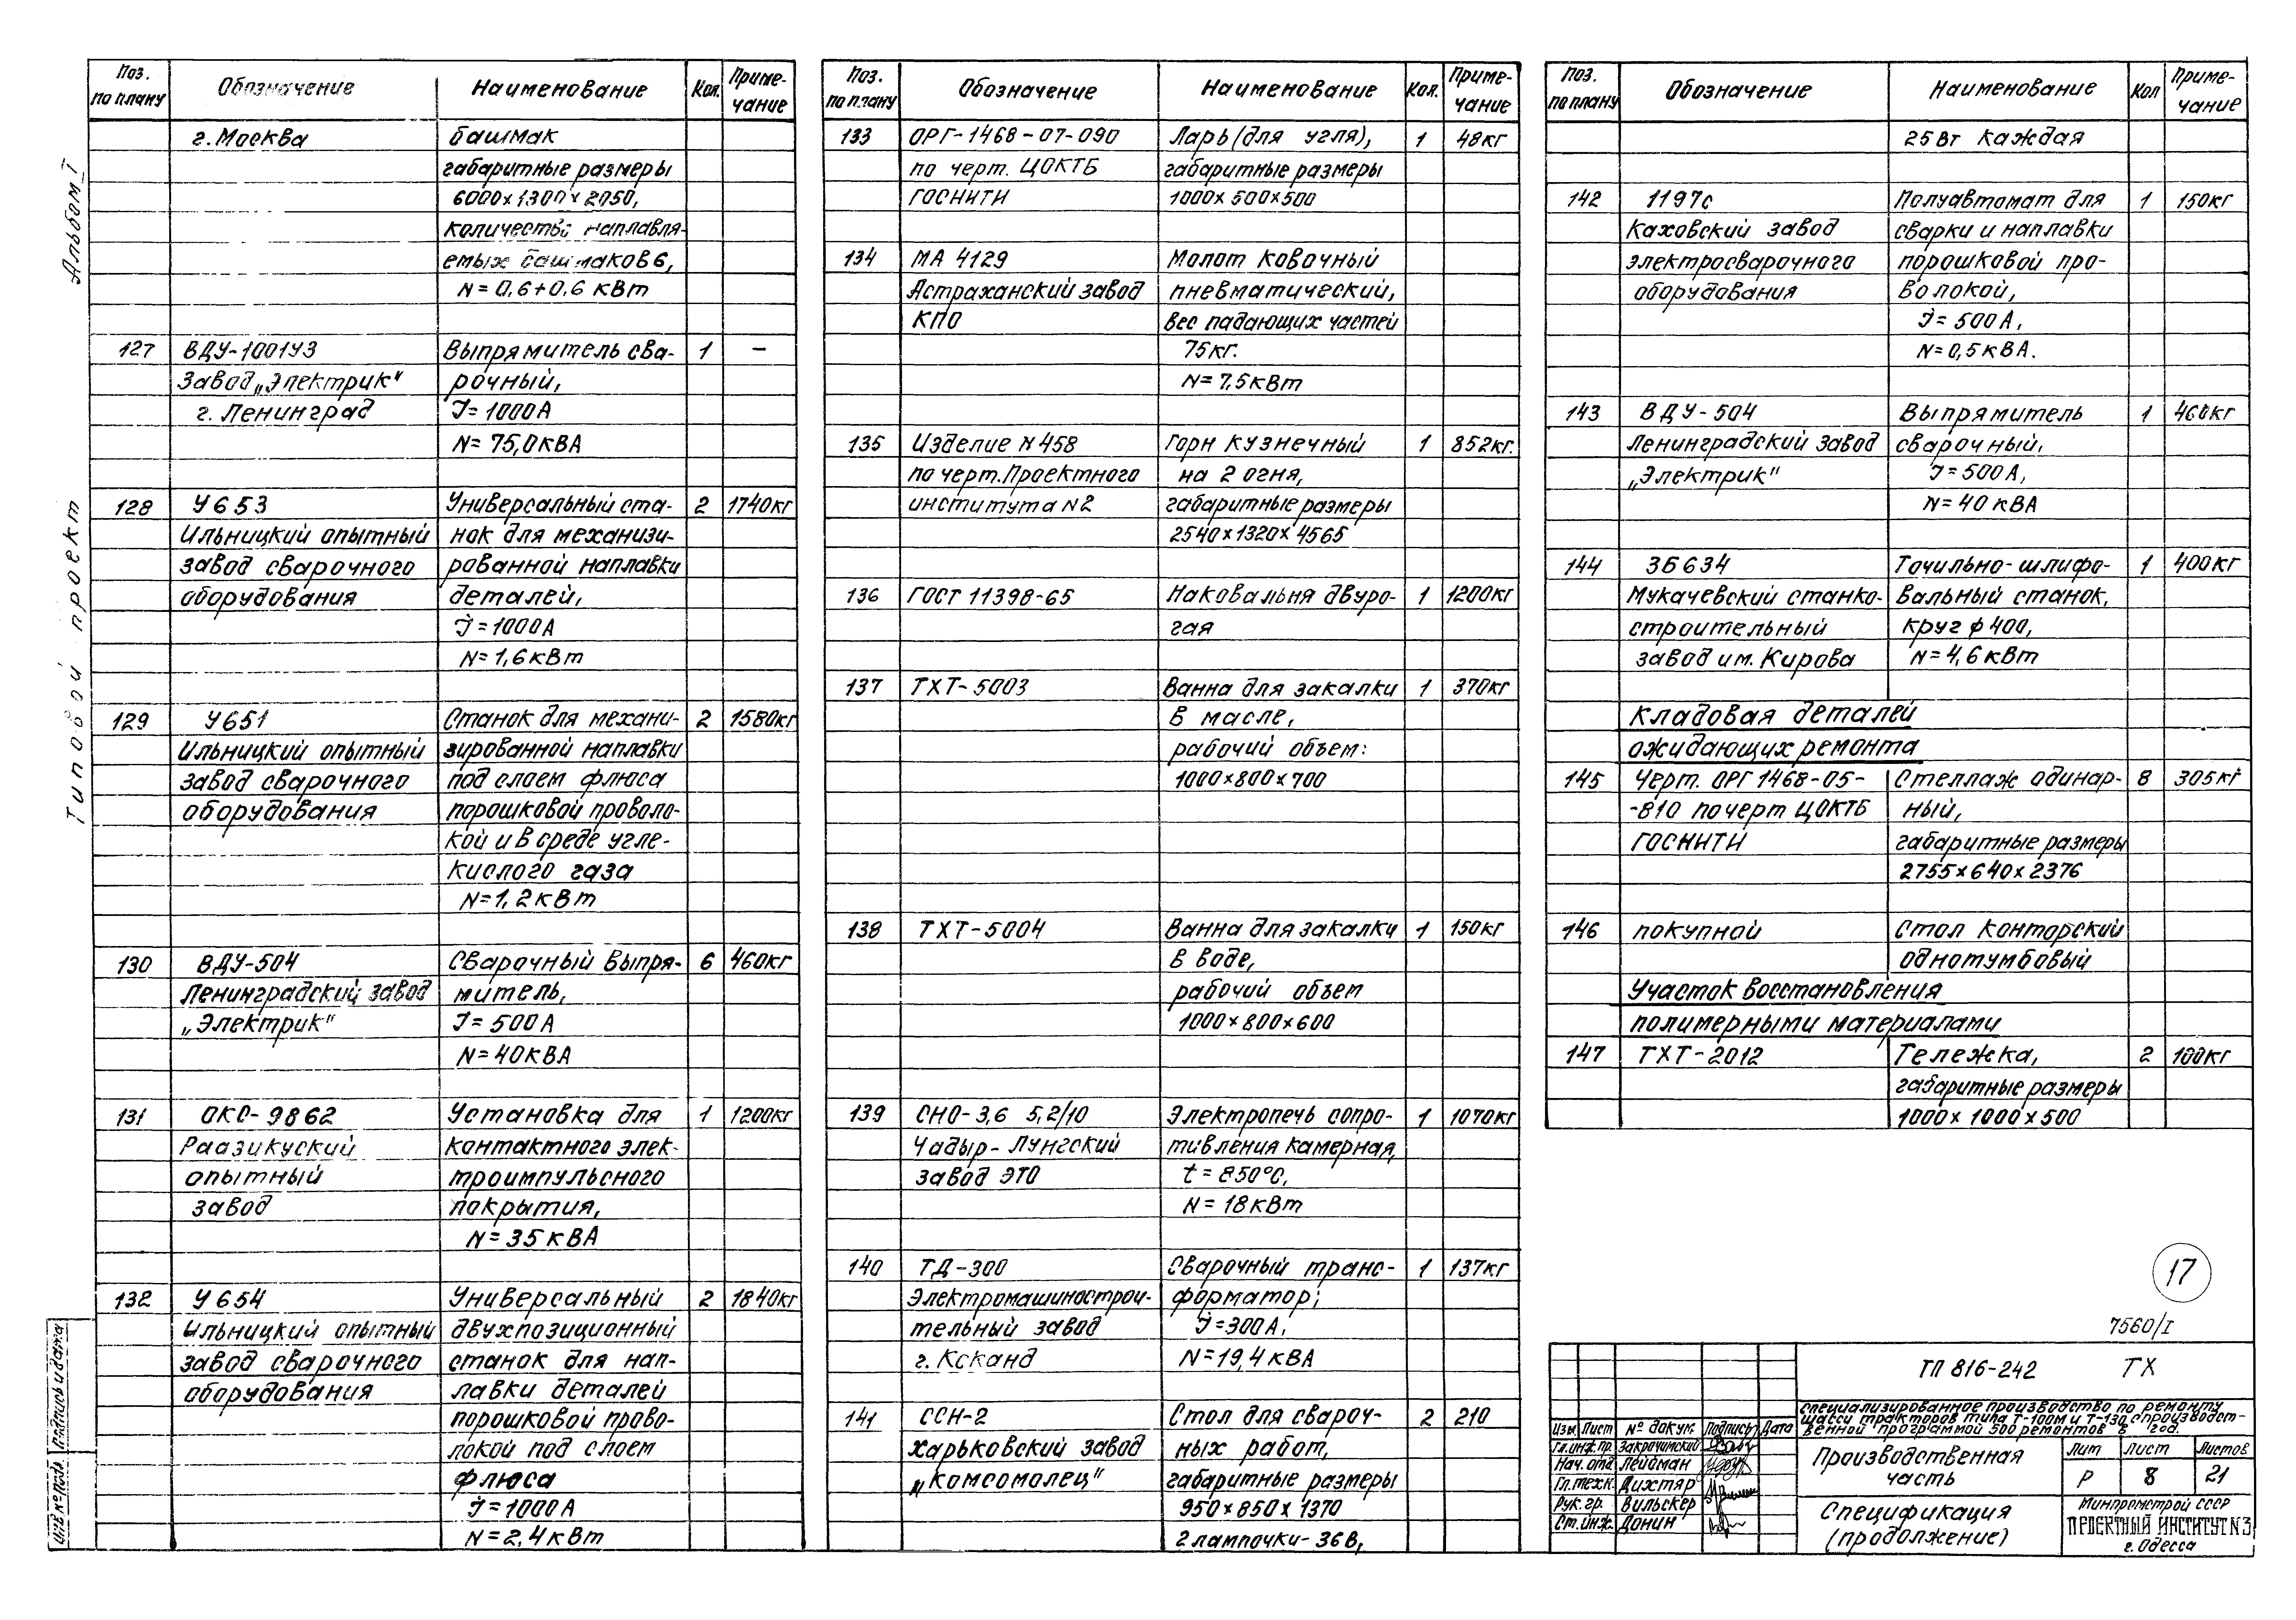 Альбом I
Типовой проект
Поз. по плану Обозначение Наименование Кол. Примечание
г. Москва башмак
габаритные размеры
6000×1300×2050,
количество наплавля-
емых башмаков 6,
N=0,6+0,6 кВт
127 ВДУ-1001У3 Выпрямитель сва- 1 —
Завод „Электрик" рочный,
г. Ленинград J=1000А
N=75,0кВА
128 У653 Универсальный ста- 2 1740кг
Ильницкий опытный нок для механизи-
завод сварочного рованной наплавки
оборудования деталей,
J=1000А
N=1,6кВт
129 У651 Станок для механи- 2 1580кг
Ильницкий опытный зированной наплавки
завод сварочного под слоем флюса
оборудования порошковой проволо-
кой и в среде угле-
кислого газа
N=1,2кВт
130 ВДУ-504 Сварочный выпря- 6 460кг
Ленинградский завод митель,
„Электрик" J=500А
N=40кВА
131 ОКС-9862 Установка для 1 1200кг
Раазикуский контактного элек-
опытный троимпульсного
завод покрытия,
N=35кВА
132 У654 Универсальный 2 1840кг
Ильницкий опытный двухпозиционный
завод сварочного станок для нап-
оборудования лавки деталей
порошковой прово-
локой под слоем
флюса
J=1000А
N=2,4кВт
Поз. по плану Обозначение Наименование Кол. Примечание
133 ОРГ-1468-07-090 Ларь (для угля), 1 48кг
по черт. ЦОКТБ габаритные размеры
ГОСНИТИ 1000×500×500
134 МА 4129 Молот ковочный
Астраханский завод пневматический,
КПО вес падающих частей
75кг.
N=7,5кВт
135 Изделие N458 Горн кузнечный 1 852кг.
по черт. Проектного на 2 огня,
института N2 габаритные размеры
2540×1320×4565
136 ГОСТ 11398-65 Наковальня двуро- 1 1200кг
гая
137 ТХТ-5003 Ванна для закалки 1 370кг
в масле,
рабочий объем:
1000×800×700
138 ТХТ-5004 Ванна для закалки 1 150кг
в воде,
рабочий объем
1000×800×600
139 СНО-3,6 5,2/10 Электропечь сопро- 1 1070кг
Чадыр-Лунгский тивления камерная,
завод ЭТО t=850°С,
N=18кВт
140 ТД-300 Сварочный транс- 1 137кг
Электромашинострои- форматор;
тельный завод J=300А,
г. N=19,4кВА
141 ССН-2 Стол для свароч- 2 210
харьковский завод ных работ,
„Комсомолец" габаритные размеры
950×850×1370
2 лампочки-36В,
Поз. по плану Обозначение Наименование Кол Примечание
25Вт каждая
142 1197с Полуавтомат для 1 150кг
Каховский завод сварки и наплавки
электросварочного порошковой про-
оборудования волокой,
J=500А,
N=0,5кВА.
143 ВДУ-504 Выпрямитель 1 460кг
Ленинградский завод сварочный,
„Электрик" J=500А,
N=40кВА
144 3Б634 Точильно-шлифо- 1 400кг
Мукачевский станко- вальный станок,
строительный круг ф400,
завод им. Кирова N=4,6кВт
Кладовая деталей
ожидающих ремонта
145 Черт. ОРГ 1468-05- Стеллаж одинар- 8 305кг
-810 по черт ЦОКТБ ный,
ГОСНИТИ габаритные размеры
2755×640×2376
146 покупной Стол конторский
однотумбовый
Участок восстановления
полимерными материалами
147 ТХТ-2012 Тележка, 2 100кг
габаритные размеры
1000×1000×500
17
7560/I
ТП 816-242 ТХ
специализированное производство по ремонту
шасси тракторов типа Т-100М и Т-130 с производст-
венной программой 500 ремонтов в год.
Изм. Лист № докум. Подпись Дата
Гл.инж.пр. Закрочимский
Нач. отд. Лейдман
Гл.техн. Дихтяр
Рук. гр. Вильскер
Ст.инж. Донин
Производственная
часть
Лит Лист Листов
Р 8 21
Спецификация
(продолжение)
Минпромстрой СССР
ПРОЕКТНЫЙ ИНСТИТУТ N3
г. Одесса
Подпись и дата
Инв № подл.